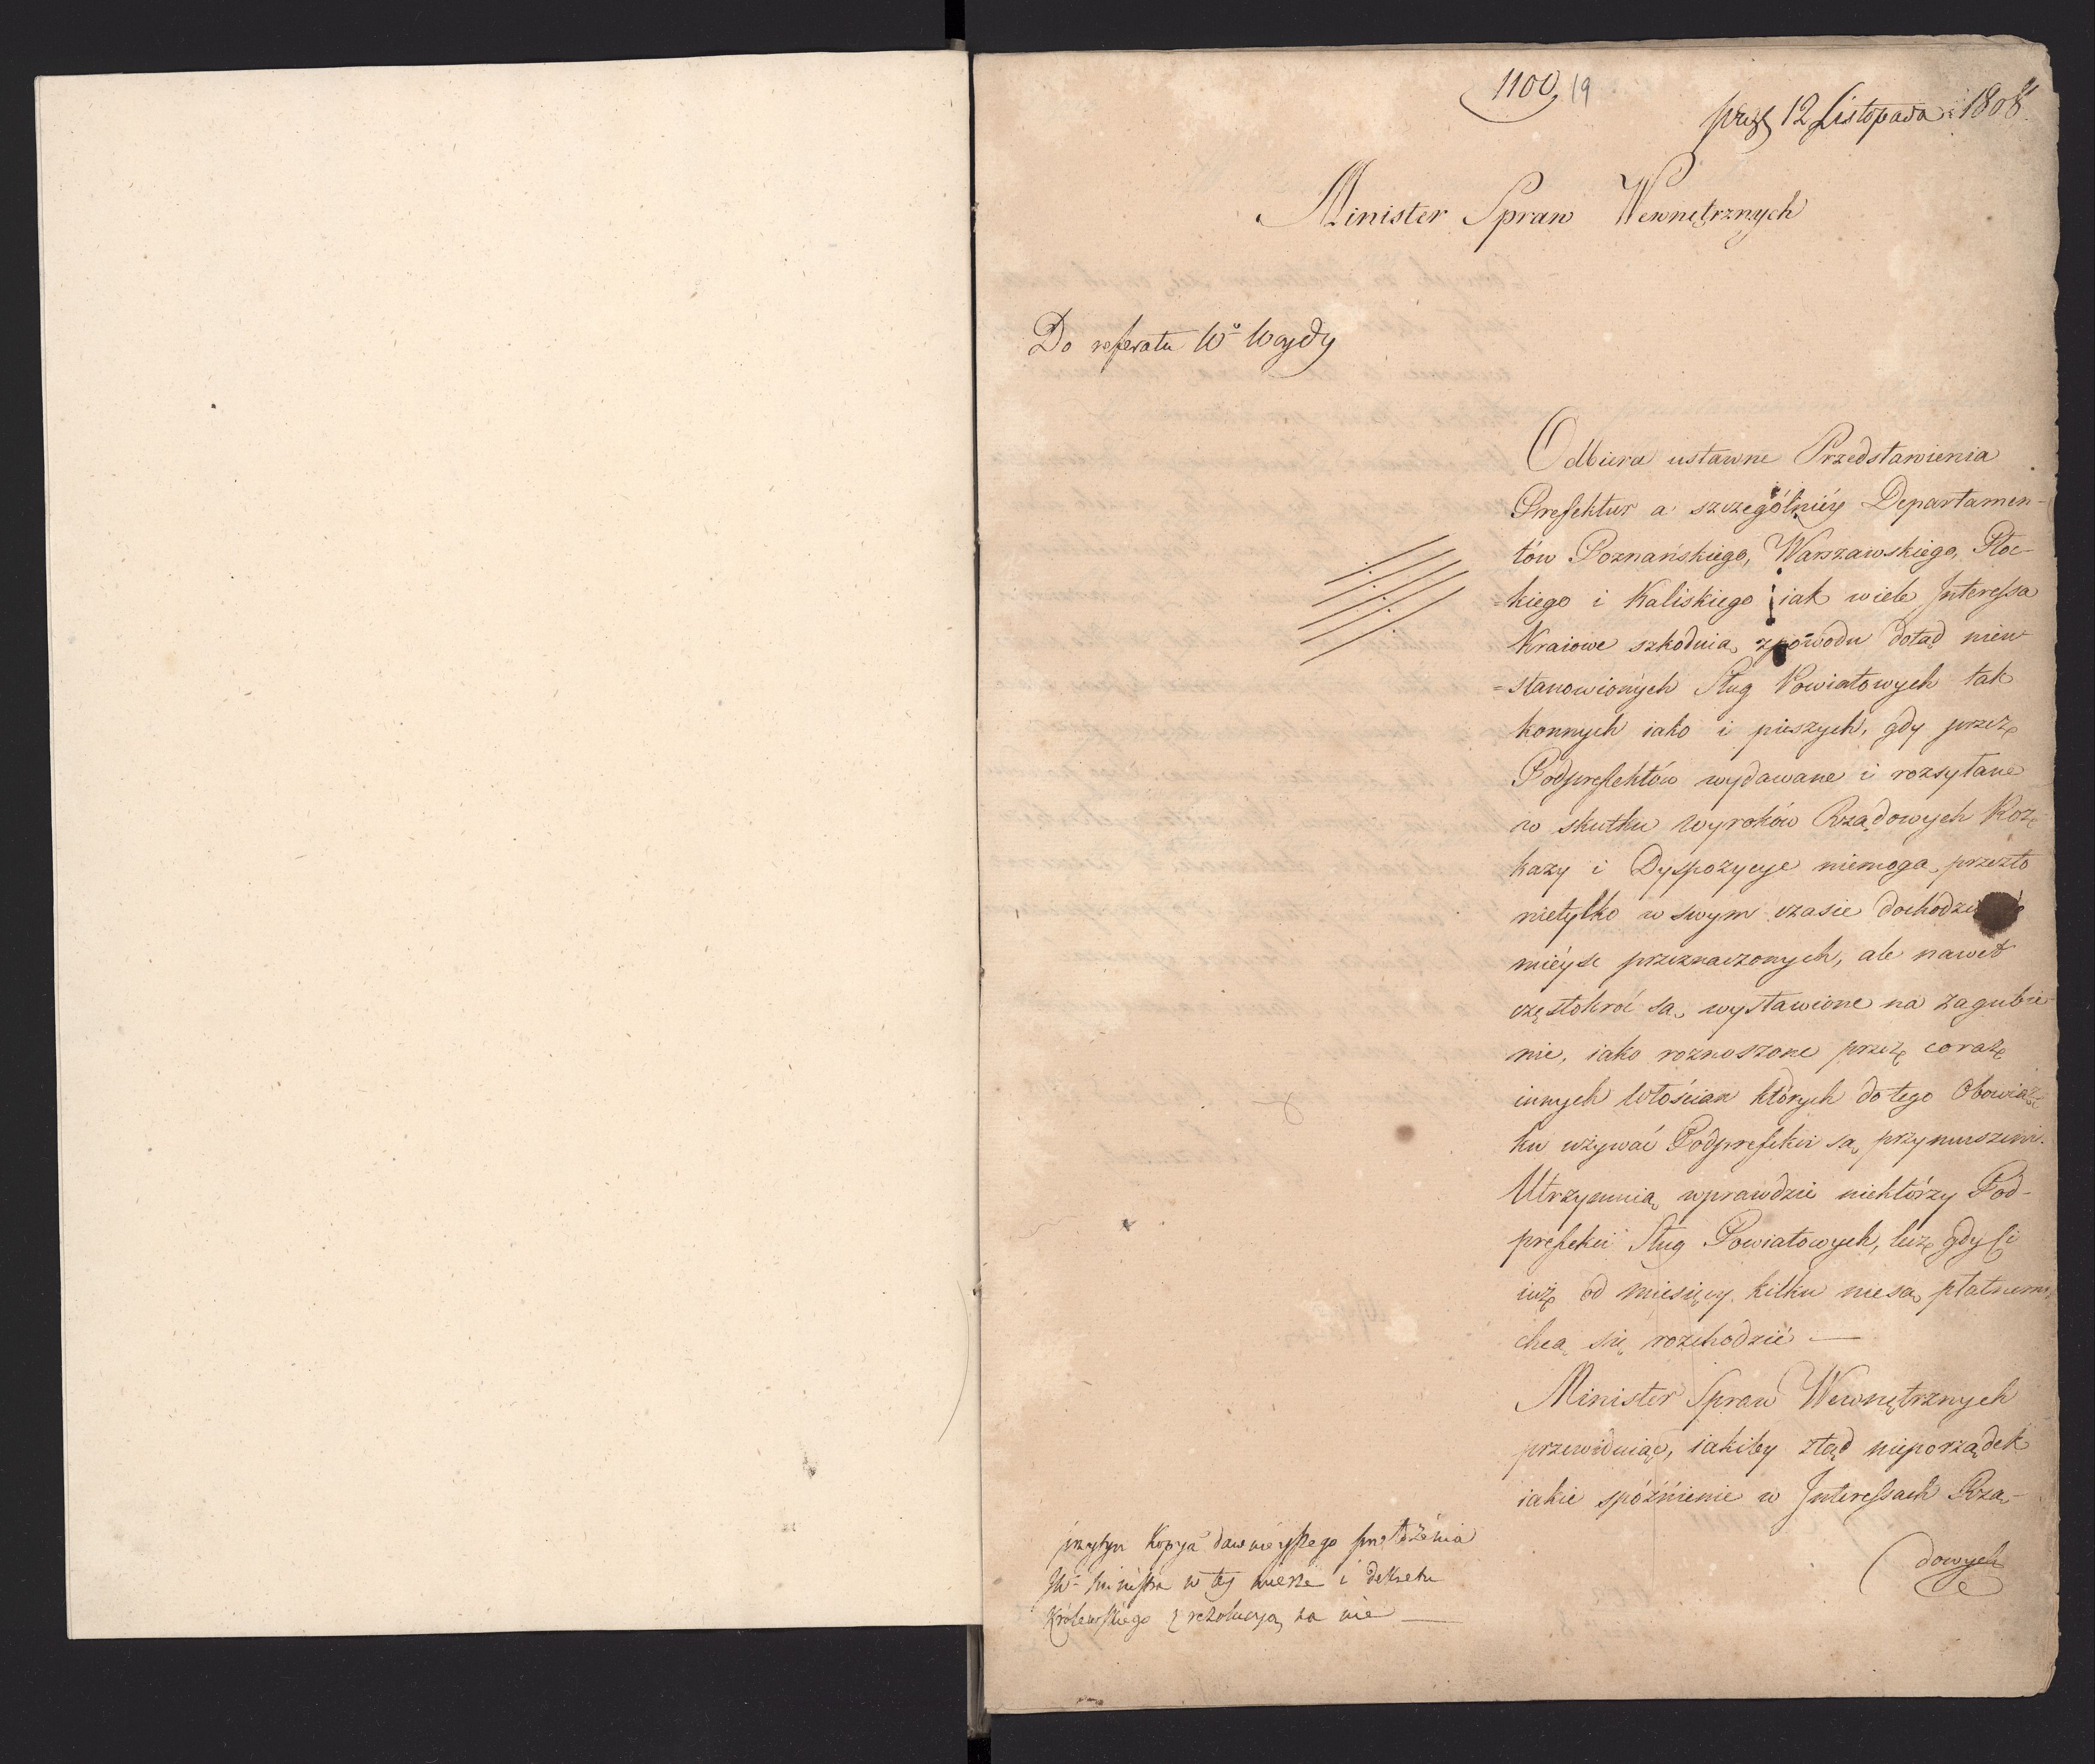 1100, 19
12 Listopada 1808
Minister Spraw Wewnętrznych
Do referatu Wo Waydy
Odbiera ustawne Przedstawienia
Prefektur a szczególniéy Departamen-
tów Poznańskiego, Warszawskiego, Płoc-
=kiego i Kaliskiego iak wiele Interessa
Kraiowe szkoduią zpowodu dotąd nieu-
=stanowionych Sług Powiatowych tak
konnych iako i pieszych, gdy przez
Podprefektów wydawane i rozsyłane
w skutku wyroków Rządowych Roz-
kazy i Dyspozycye niemogą przezto
nietylko w swym czasie dochodzić
mieysc przeznaczonych, ale nawet
częstokroć są wystawione na zagubie-
nie, iako roznoszone przez coraz
innych Włościan których do tego Obowiąz-
ku używać Podprefekci są przymuszeni.
Utrzymuią wprawdzie niektórzy Pod-
prefekci Sług Powiatowych, lecz gdy ci
iuż od miesięcy kilku niesą płatnemi,
chcą się rozchodzić —
Minister Spraw Wewnętrznych
przewiduiąc, iakiby ztąd nieporządek
iakie spóźnienie w Interessach Rzą-
dowych
przytym Kopyia dawnieyszego przełożenia
JW Ministra w tey mierze i dekretu
Królewskiego z rezolucyą na nie —